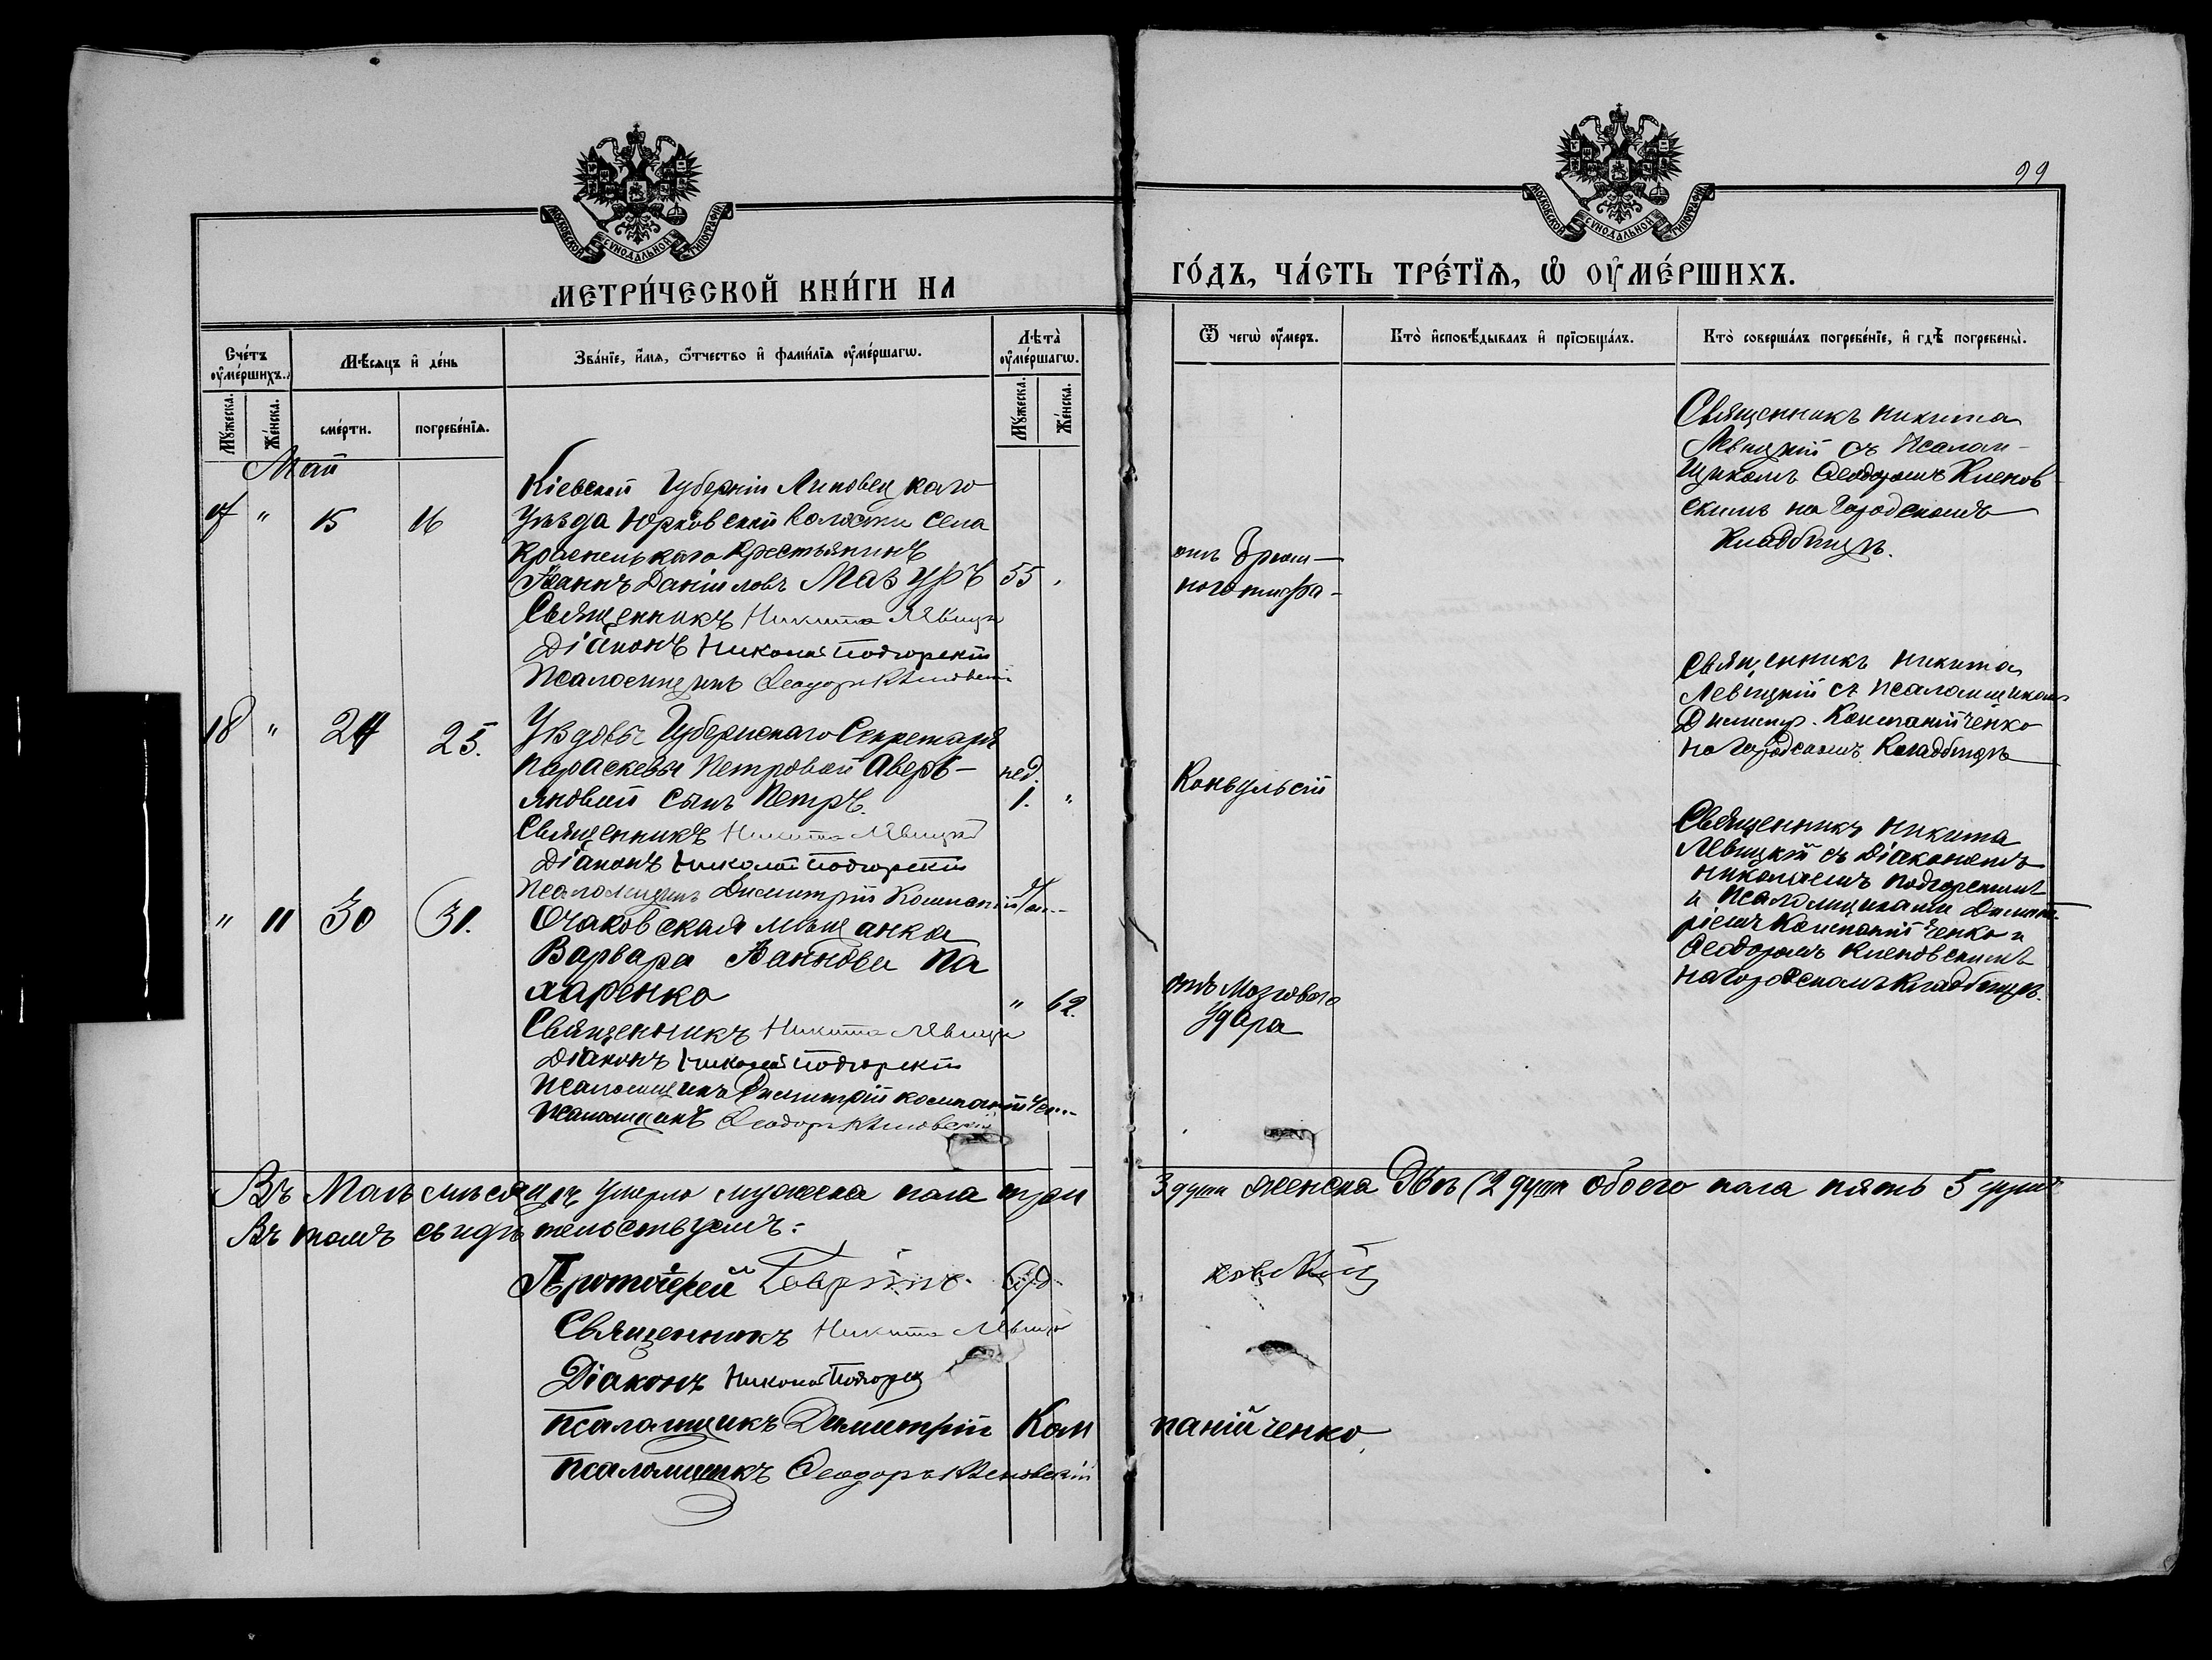 99
МОСКОВСКОЙ СѴНОДАЛЬНОЙ ТИПОГРАФІИ
МОСКОВСКОЙ СѴНОДАЛЬНОЙ ТИПОГРАФІИ
МЕТРИ́ЧЕСКОЙ КНИ́ГИ НА
ГО́ДЪ, ЧА́СТЬ ТРЕ́ТІѦ, Ѡ ОУ҆МЕ́РШИХЪ.
Сче́тъ оу҆ме́ршихъ.
Мѣ́сѧцъ и҆ де́нь
Зва́нїе, и҆́мѧ, ѻ҆́тчество и҆ фами́лїѧ оу҆ме́ршагѡ.
Лѣ́та оу҆ме́ршагѡ.
Ѿ чегѡ̀ оу҆́меръ.
Кто̀ и҆сповѣ́дывалъ и҆ прїѡбща́лъ.
Кто̀ соверша́лъ погребе́нїе, и҆ гдѣ̀ погребены̀.
Мꙋ́жеска.
Же́нска.
сме́рти.
погребе́нїѧ.
Мꙋ́жеска.
Же́нска.
Май
17 " 15 16
Кіевской Губерніи Липовецкаго
Уѣзда Юрковской Волости Села
Красненькаго Крестьянинъ
Іоаннъ Даніиловъ Мазуръ 55
Священникъ Никита Лѣвицк
Діаконъ Николай Подгорскій
Псаломщикъ Ѳеодоръ Кленовскій
отъ Брюш-
ного тифа-
Священникъ Никита
Лѣвицкій съ Псалом-
щикомъ Ѳеодоромъ Кленов
скимъ на Городскомъ
Кладбищѣ.
18 " 24 25.
У вдовы Губернскаго Секретаря
Параскевы Петровой Аверь-
яновой сынъ Петръ.
нед. 1. "
Священникъ Никита Лѣвицкій
Діаконъ Николай Подгорскій
Псаломщикъ Димитрій Компаній
Конвульсій
Священникъ Никита
Левицкій съ псаломщикомъ
Димитр. Компанійченко
на Городскомъ Кладбищѣ
" 11 30 31.
Очаковская мѣщанка
Варвара Іоаннова Па
харенко " 62.
Священникъ Никита Лѣвицк
Діаконъ Николай Подгорскій
Псаломщикъ Димитрій Компанійчен
Псаломщикъ Ѳеодоръ Кленовскій
отъ Мозгового
Удара
Священникъ Никита
Лѣвицкій съ Діакономъ
Николаемъ Подгорскимъ
и Псаломщиками Димит-
ріемъ Компанійченко и
Ѳеодоромъ Кленовскимъ
на Городскомъ Кладбищѣ.
Въ Маѣ мѣсяцѣ умерло мужеска пола три 3 души женска двѣ (2 души обоего пола пять 5 душъ
Въ томъ свидѣтельствуемъ:
Протоіерей Гавріилъ
Священникъ Никита Лѣвицк
Діаконъ Николай Подгорск
Псаломщикъ Димитрій Компанійченко
Псаломщикъ Ѳеодоръ Кленовскій